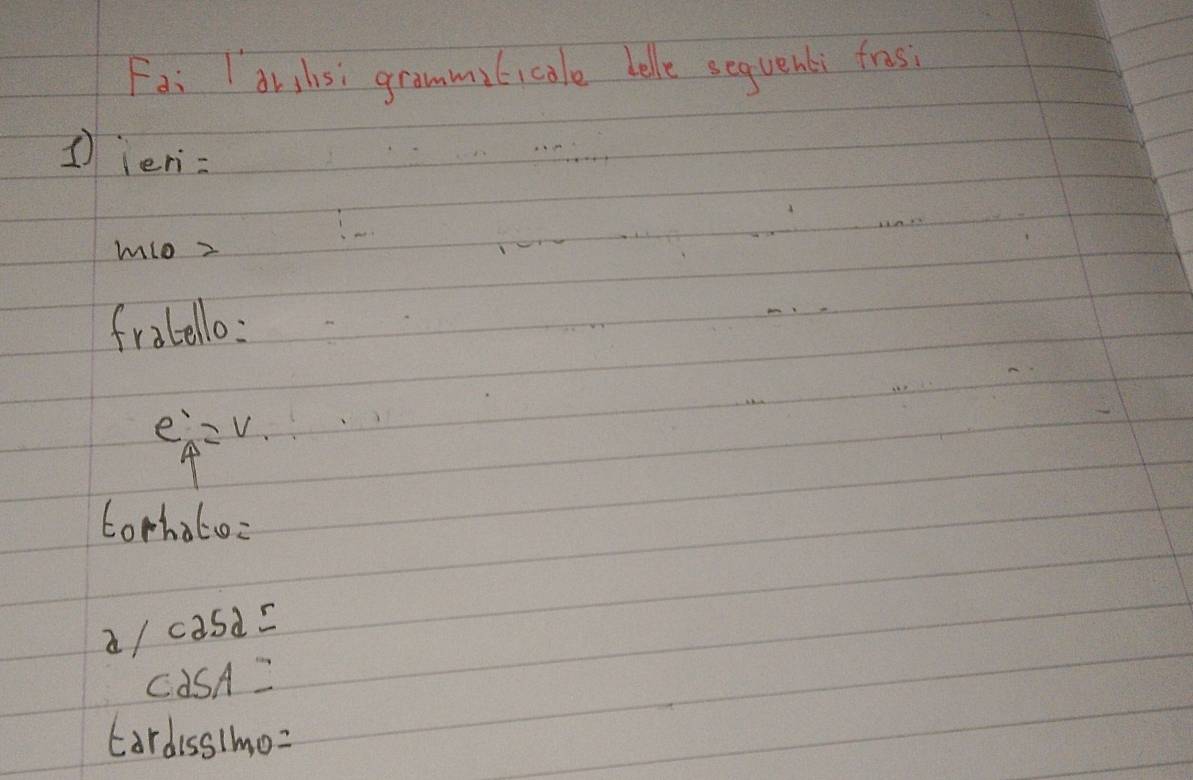 Fai l'analisi grammaticale delle seguenti frasi
1) ieri =
mio =
fratello =
è = v.
tornato =
a / casa =
casA =
tardissimo =